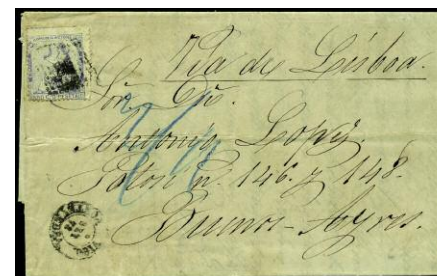 Via de Lisboa.
Sor Dn.
Antonio Lopez.
n. 146 y 148.
Buenos-Ayres.